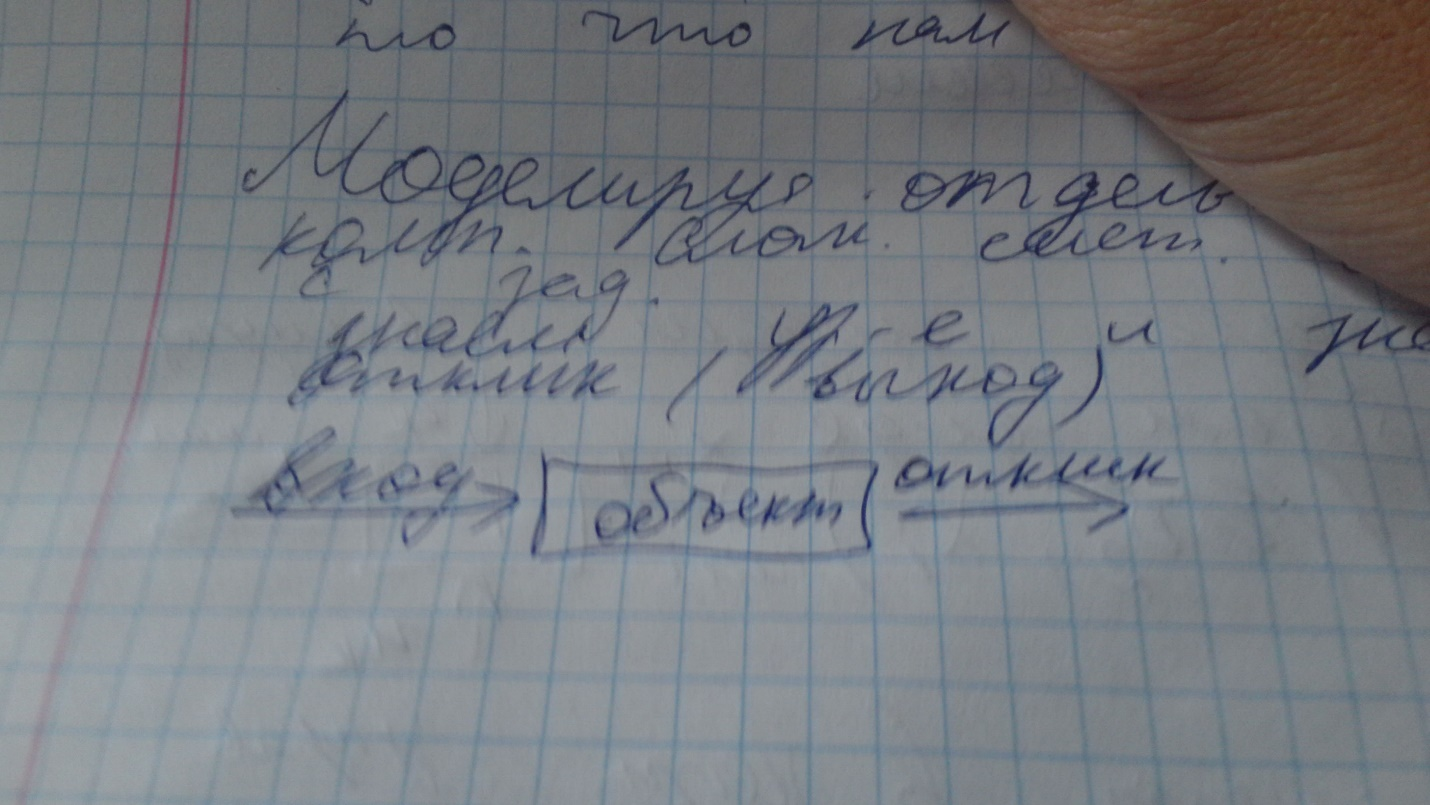 то что нам
Моделируя отдель
комп. слож. сист.
с зад.
ф-е и
отклик ( выход)
вход объект отклик